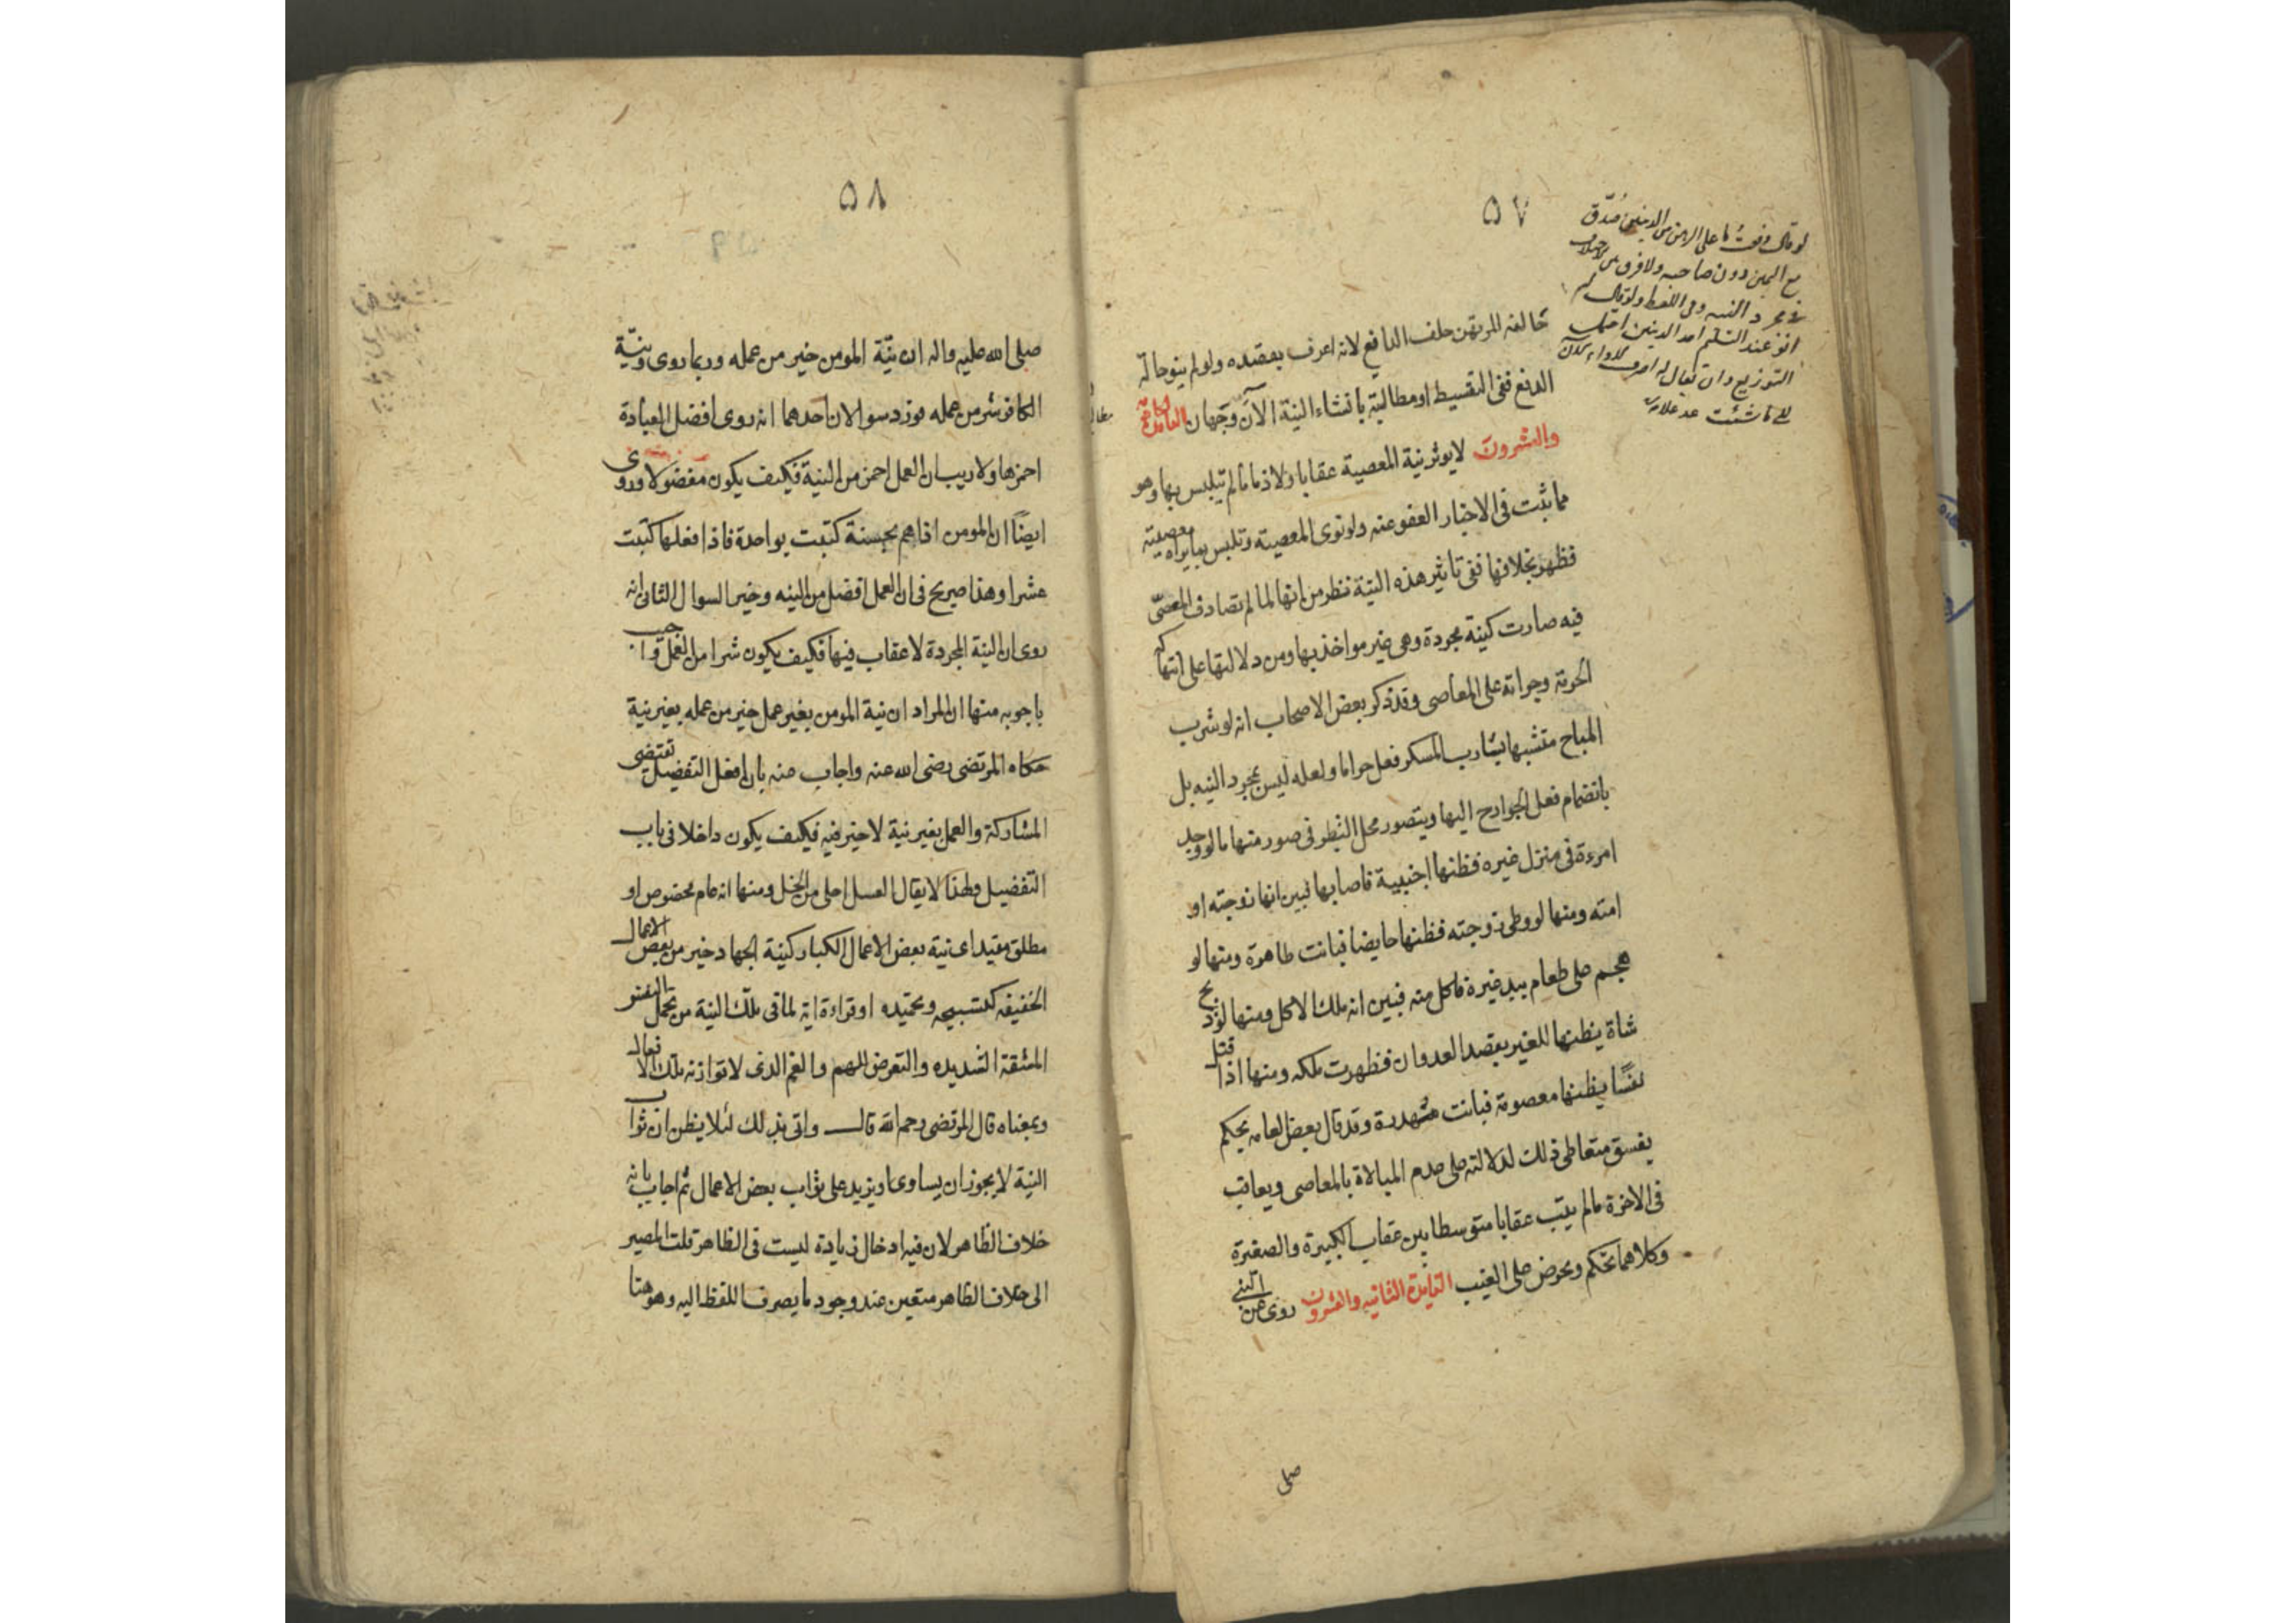 ٥٧
لو قال دفعت ما على الرهن من الدينين صُدّق
مع اليمين دون صاحبه ولا فرق بين الاختلاف
في مجرد النية وفي اللفظ ولو قال لم
انو عند التسليم احد الدينين احتمل
التوزيع وان يقال له اصرف الاداء الآن
الى ما شئت
خالفه المرتهن حلف الدافع لانه اعرف بقصده ولو لم ينو حالة
الدفع ففى التقسيط او مطالبته بانشاء النية الآن وجهان الفائدة
والعشرون لا يوثر نية المعصية عقابا ولا ذما ما لم يتلبس بها وهو
مما ثبت فى الاخبار العفو عنه ولو نوى المعصية وتلبس بما يراه معصية
فظهر بخلافها ففى تاثير هذه النية نظر من انها لما لم تصادف المعصى
فيه صارت كنية مجردة وهى غير مواخذ بها ومن دلالتها على انتهاكه
الحرمة وجراته على المعاصى وقد ذكر بعض الاصحاب انه لو شرب
المباح متشبها بشارب المسكر فعل حراما ولعله ليس بمجرد النيه بل
بانضمام فعل الجوارح اليها ويتصور محل النظر فى صور منها ما لو وجد
امرءة فى منزل غيره فظنها اجنبية فاصابها فبين انها زوجته او
امته ومنها لو وطى زوجته فظنها حايضا فبانت طاهرة ومنها لو
هجم على طعام بيد غيره فاكل منه فبين انه ملك الاكل ومنها لو ذبح
شاة يظنها للغير بقصد العدوان فظهرت ملكه ومنها اذا قتل
نفسًا يظنها معصومة فبانت مهدرة وقد قال بعض العامه يحكم
بفسق متعاطى ذلك لدلالته على عدم المبالاة بالمعاصى ويعاقب
فى الاخرة ما لم يتب عقابا متوسطا بين عقاب الكبيرة والصغيرة
وكلاهما تحكم وتخرص على الغيب الفايدة الثانيه والعشرون روى عن النبى
صلى
٥٨
صلى الله عليه واله ان نيّة المومن خير من عمله وربما روى ونيّة
الكافر شر من عمله فورد سوالان احدهما انه روى افضل العبادة
احمزها ولا ريب ان العمل احمز من النية فكيف يكون مفضولا وروى
ايضًا ان المومن اذا هم بحسنة كتبت بواحدة فاذا فعلها كتبت
عشرا وهذا صريح فى ان العمل افضل من النيه وخير السوال الثانى انه
روى ان النية المجردة لا عقاب فيها فكيف يكون شرا من العمل واجيب
باجوبه منها ان المراد ان نية المومن بغير عمل خير من عمله بغير نية
حكاه المرتضى رضى الله عنه واجاب عنه بان افعل التفضيل تقتضى
المشاركة والعمل بغير نية لا خير فيه فكيف يكون داخلا فى باب
التفضيل ولهذا لا يقال العسل احلى من الخل ومنها انه عام مخصوص او
مطلق مقيد اى نية بعض الاعمال الكبار كنية الجهاد خير من بعض الاعمال
الخفيفه كتسبيحه وتحميده او قراءة اية لما فى تلك النية من تحمل النفس
المشقة الشديده والتعرض للهم والغم الذى لا توازنه تلك الافعال
وبمعناه قال المرتضى رحمه الله قال واتى بذلك لئلا يظن ان ثواب
النية لا يجوز ان يساوى او يزيد على ثواب بعض الاعمال ثم اجاب بانه
خلاف الظاهر لان فيه ادخال زيادة ليست فى الظاهر قلت المصير
الى خلاف الظاهر متعين عند وجود ما يصرف اللفظ اليه وهو هنا